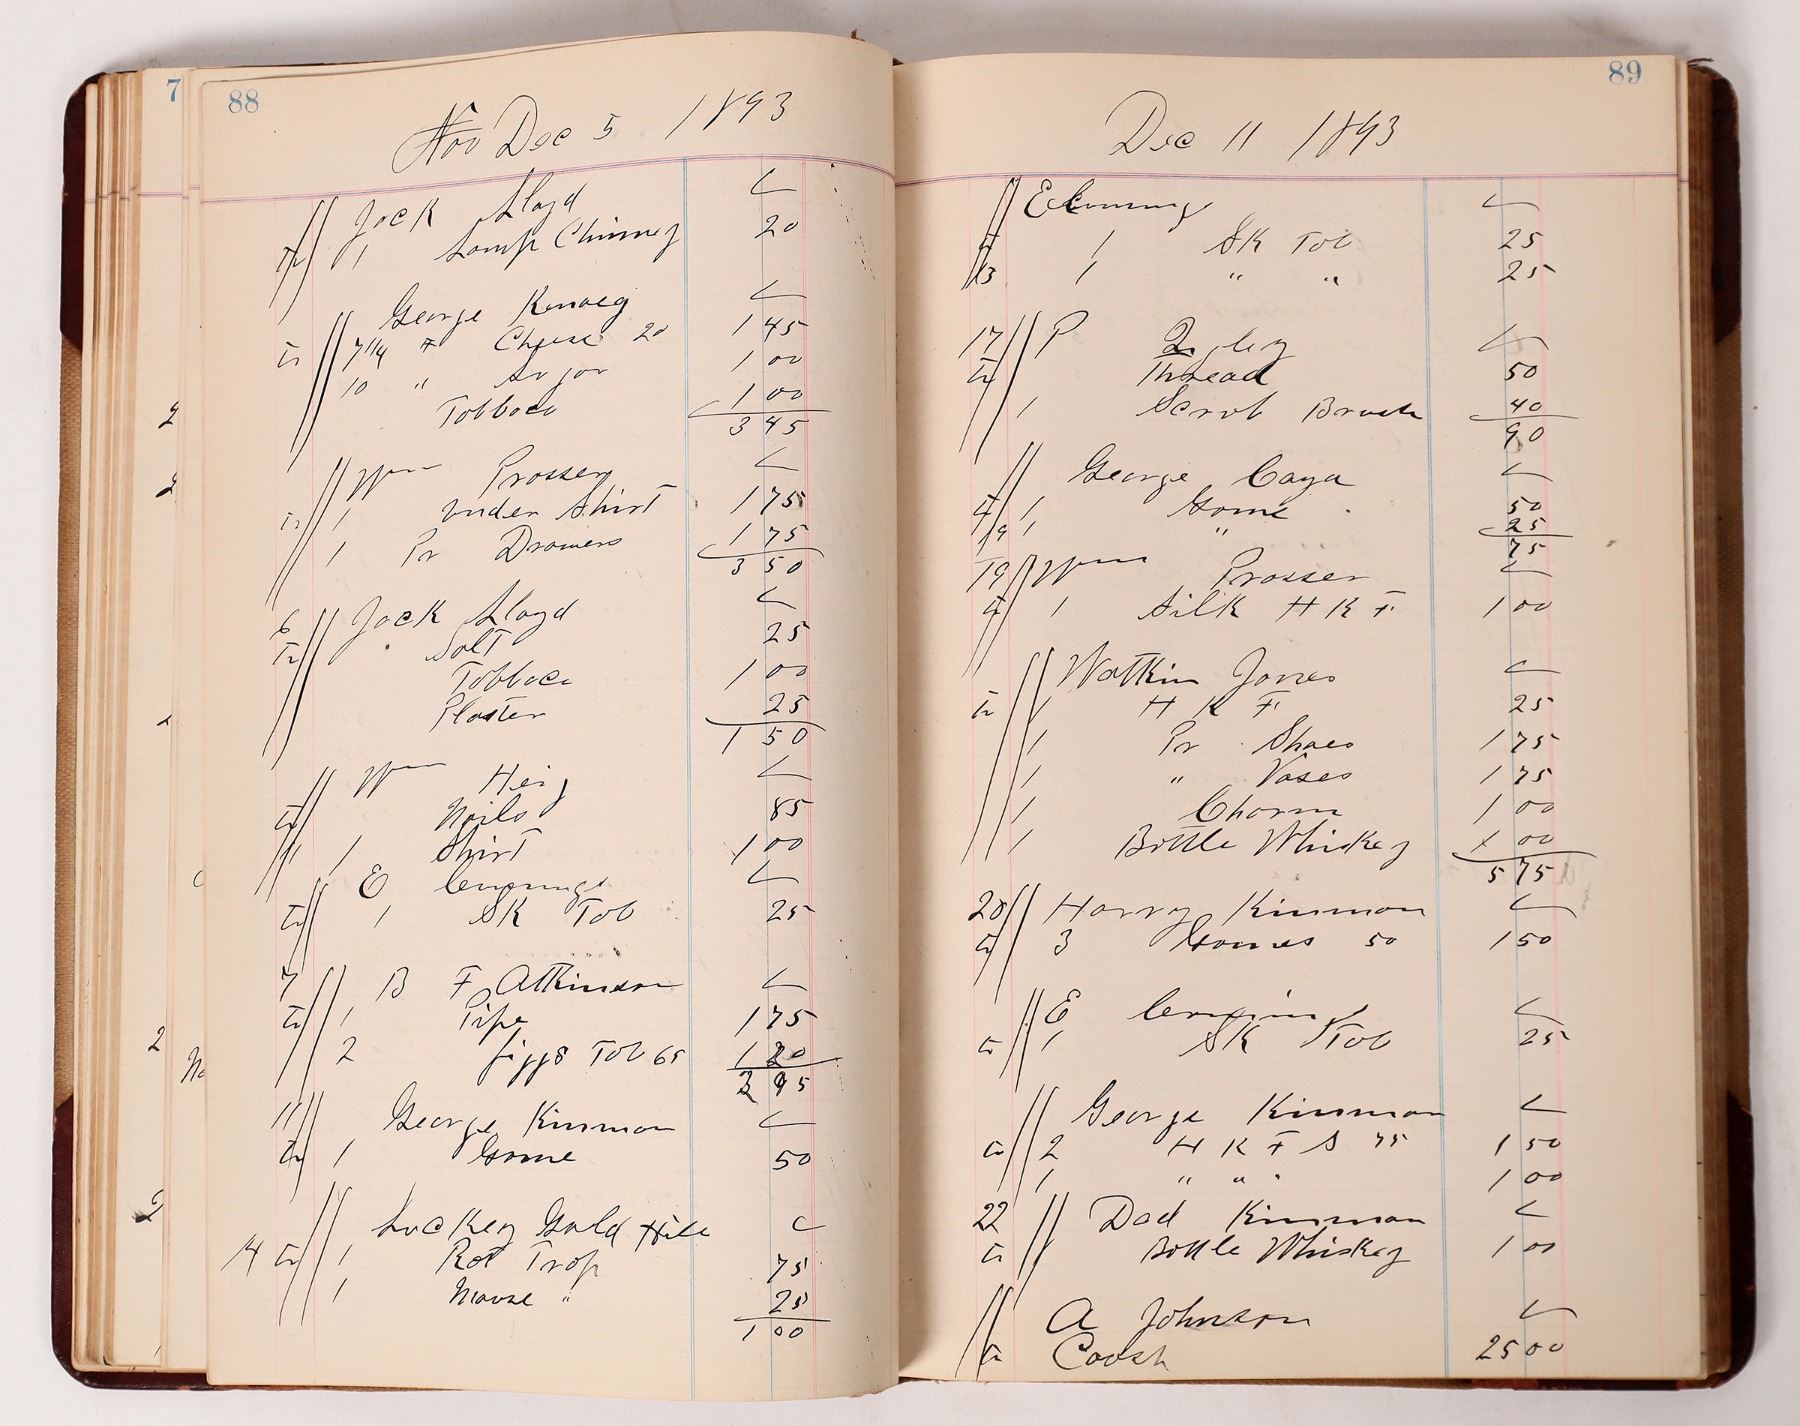 7
88
Nov Dec 5 1893
Jack Lloyd
To 1 Lamp Chimney 20
George
To 7 1/4 # Cheese 20 1 45
10 " 1 00
Tobbaco 1 00
3 45
Wm Prosser
To 1 under Shirt 1 75
1 Pr Drawers 1 75
3 50
6 Jack Lloyd
To Salt 25
Tobbaco 1 00
Plaster 25
1 50
Wm
To Nails 85
1 Shirt 1 00
E
To 1 SK Tob 25
7 B F Atkinson
To 1 Pipe 1 75
2 Jiggs Tob 65 1 20
2 95
11 George Kinman
To 1 Game 50
Luckey Gold Hill
14 To 1 Rat Trap 75
1 Mouse " 25
1 00
89
Dec 11 1893
E
To 1 SK Tob 25
13 1 " " 25
17 P
To Thread 50
1 Scrub Brush 40
90
George Caya
To 1 Game 50
19 1 " 25
75
19 Wm Prosser
To 1 Silk H K F 1 00
Watkin Jones
To 1 H K F 25
1 Pr Shoes 1 75
1 " Vases 1 75
1 Charm 1 00
1 Bottle Whiskey 1 00
5 75
20 Harry Kinman
To 3 Games 50 1 50
E
To 1 SK Tob 25
George Kinman
To 2 H K F S 75 1 50
1 " " 1 00
22 Dad Kinman
To 1 Bottle Whiskey 1 00
A Johnson
To Coash 25 00